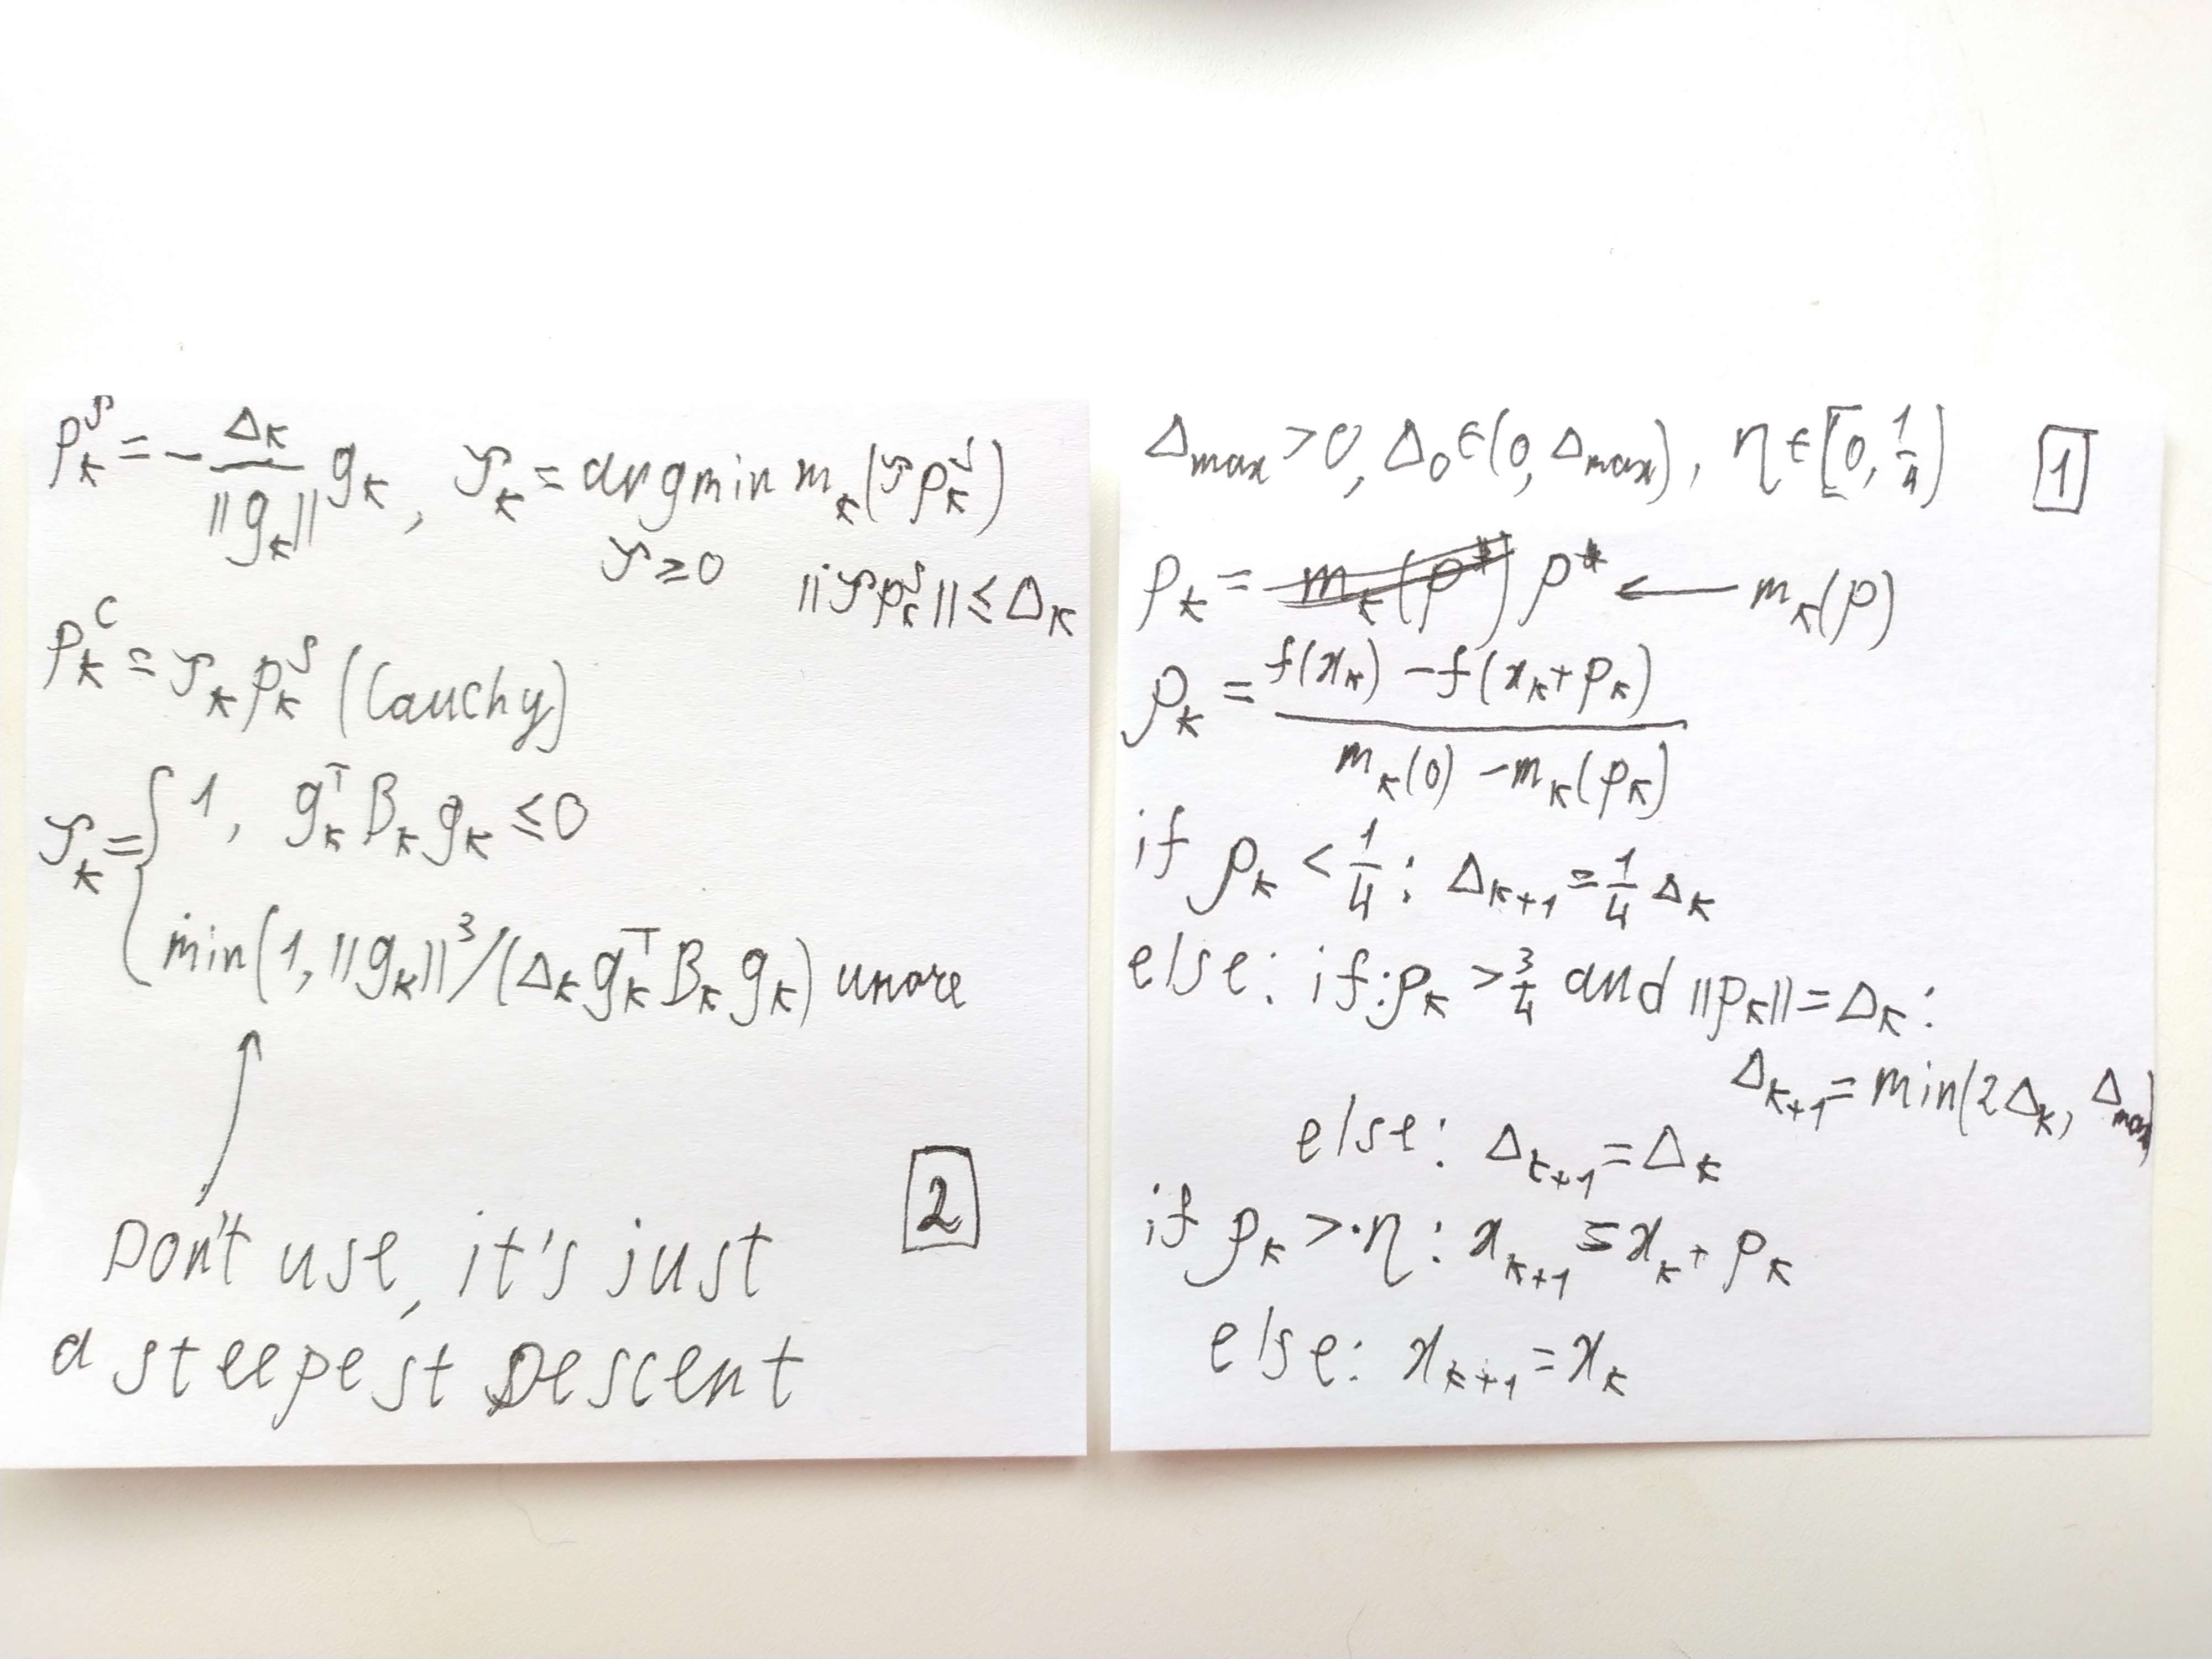 p_k^S = - Δ_k / ||g_k|| g_k, τ_k = argmin m_k(τ p_k^S)
τ ≥ 0 ||τ p_k^S|| ≤ Δ_k
p_k^C = τ_k p_k^S (Cauchy)
τ_k = { 1, g_k^T B_k g_k ≤ 0
min(1, ||g_k||^3 / (Δ_k g_k^T B_k g_k) иначе
Don't use, it's just
a steepest Descent
2
Δ_max > 0, Δ_0 ∈ (0, Δ_max), η ∈ [0, 1/4)
1
p_k = m_k(p*) p* ← m_k(p)
ρ_k = f(x_k) - f(x_k + p_k) / m_k(0) - m_k(p_k)
if ρ_k < 1/4 : Δ_k+1 = 1/4 Δ_k
else: if: ρ_k > 3/4 and ||p_k|| = Δ_k :
Δ_k+1 = min(2Δ_k, Δ_max)
else: Δ_k+1 = Δ_k
if ρ_k > η : x_k+1 = x_k + p_k
else: x_k+1 = x_k